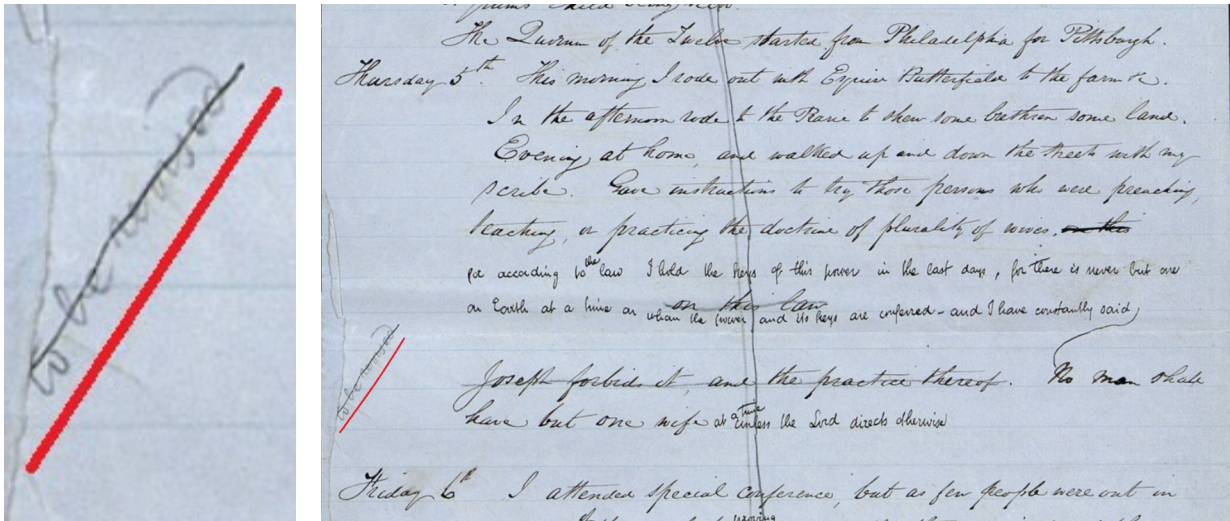 to be revised
The Quorum of the Twelve started from Philadelphia for Pittsburgh.
Thursday 5th. This morning I rode out with Esquire Butterfield to the farm &c.
In the afternoon rode to the Prarie to shew some brethren some land.
Evening at home, and walked up and down the streets with my
scribe. Gave instructions to try those persons who were preaching,
teaching, or practicing the doctrine of plurality of wives. on this
for according to the law I hold the keys of this power in the last days, for there is never but one
on Earth at a time on whom the power and its keys are conferred - and I have constantly said
on this law
to be revised
Joseph forbids it, and the practice thereof. No man shall
have but one wife at a time unless the Lord directs otherwise
Friday 6th I attended special conference, but as few people were out in